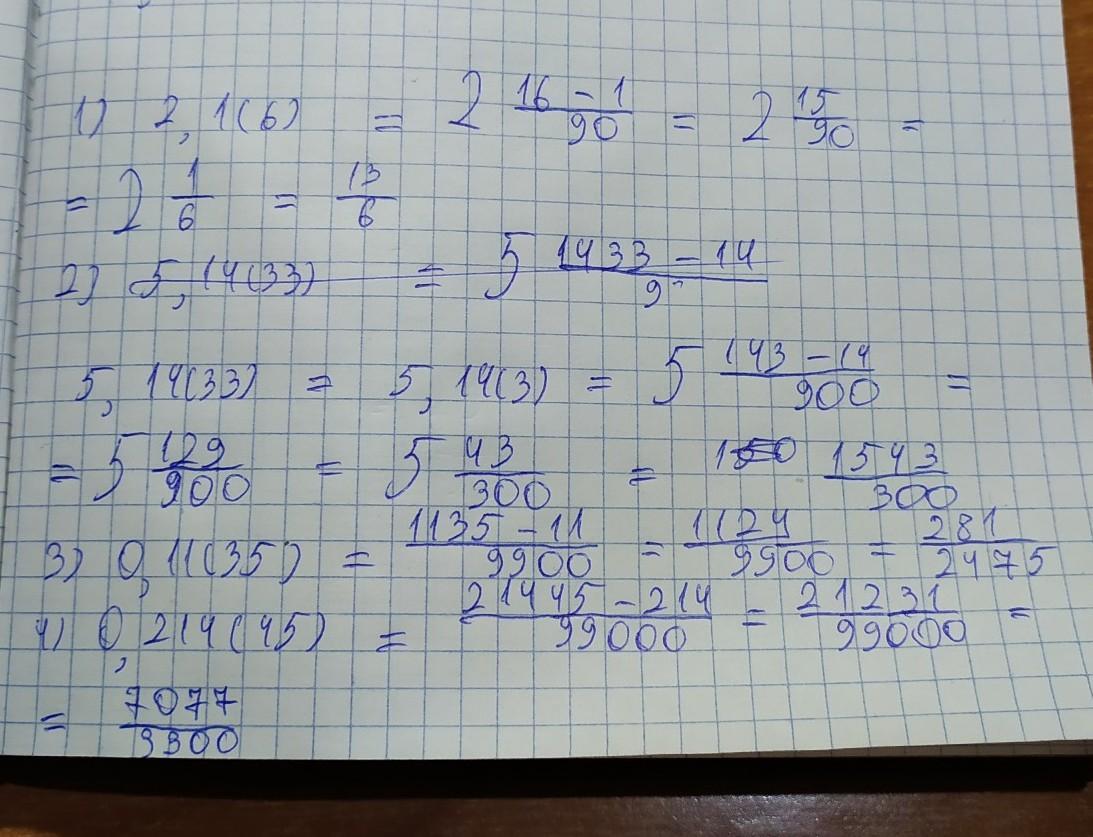 1) 2,1(6) = 2 16-1/90 = 2 15/90 =
= 2 1/6 = 13/6
2) 5,14(33) = 5 1433-14/9
5,14(33) = 5,14(3) = 5 143-14/900 =
= 5 129/900 = 5 43/300 = 1543/300
3) 0,11(35) = 1135-11/9900 = 1124/9900 = 281/2475
4) 0,214(45) = 21445-214/99000 = 21231/99000 =
= 7077/3300